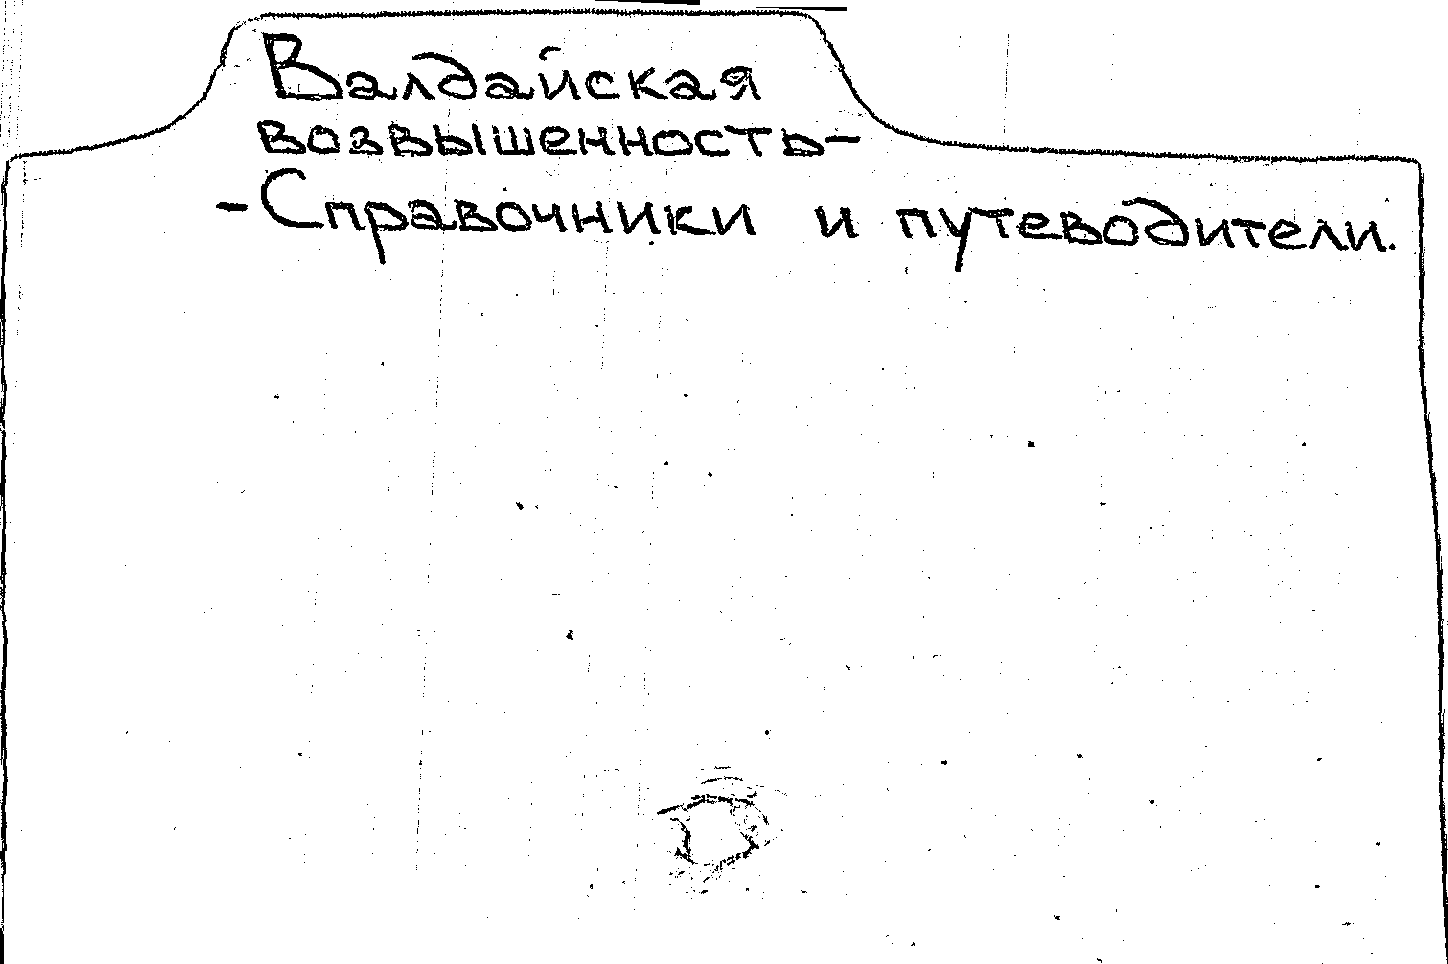 Валдайская
возвышенность-
-Справочники и путеводители.